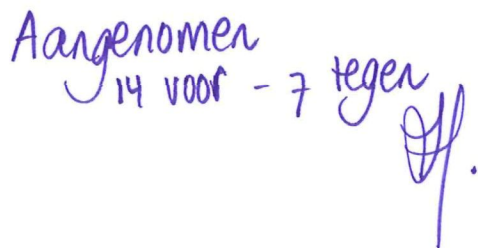 Aangenomen
14 voor - 7 tegen